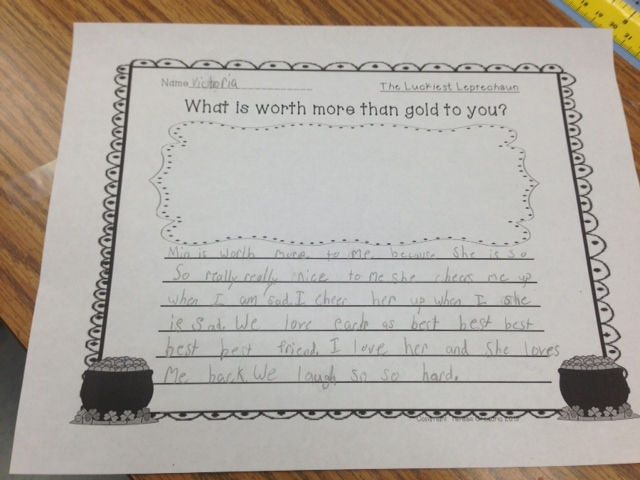 Name Victoria
The Luckiest Leprechaun
What is worth more than gold to you?
Min is worth more to me because she is so
So really really nice to me she cheers me up
when I am sad. I cheer her up when I she
is sad. We love each as best best best
best best friend. I love her and she loves
me back. We laugh so so hard.
Copyright Teresa